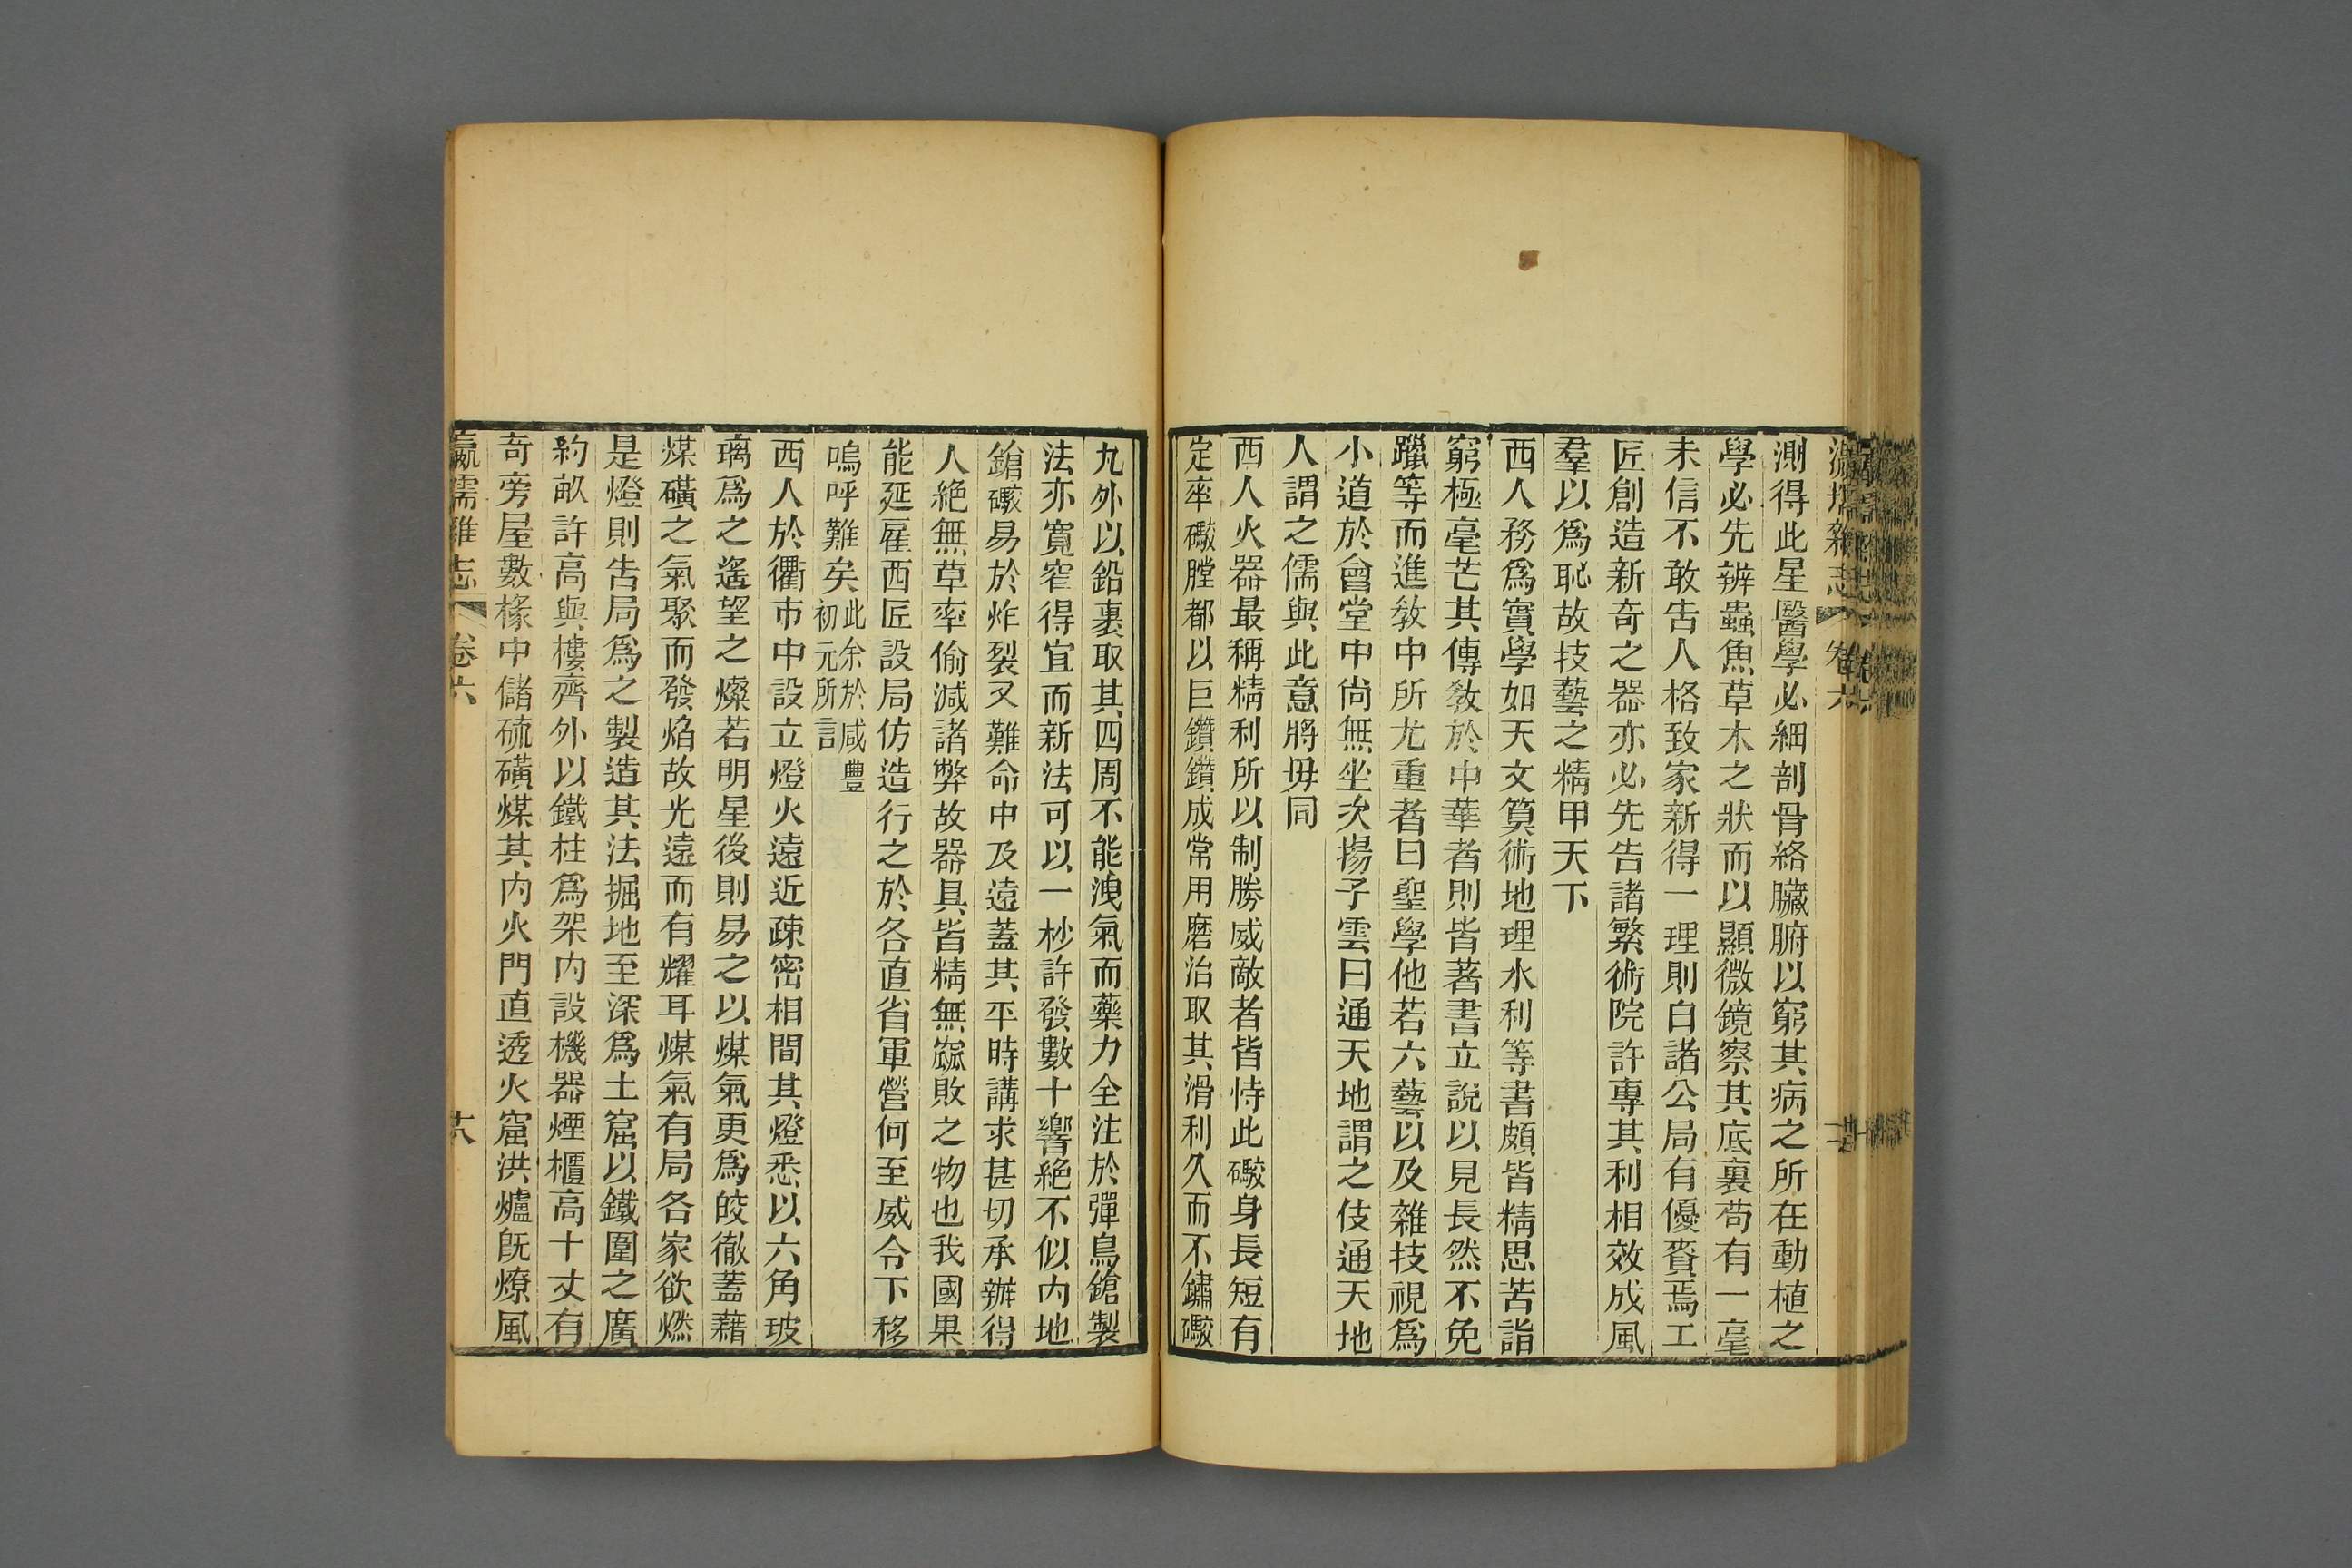 雜志 卷六
測得此星醫學必細剖骨絡臟腑以窮其病之所在動植之
學必先辨蟲魚草木之狀而以顯微鏡察其底裏苟有一毫
未信不敢吿人格致家新得一理則白諸公局有優賚焉工
匠創造新奇之器亦必先告諸繁術院許專其利相效成風
羣以爲恥故技藝之精甲天下
西人務爲實學如天文算術地理水利等書頗皆精思苦詣
窮極毫芒其傳敎於中華者則皆著書立說以見長然不免
躐等而進敎中所尤重者曰聖學他若六藝以及雜技視爲
小道於會堂中尙無坐次揚子雲曰通天地謂之伎通天地
人謂之儒與此意將毋同
西人火器最稱精利所以制勝威敵者皆恃此礮身長短有
定率礮膛都以巨鑽鑽成常用磨治取其滑利久而不鏽礮
九外以鉛裹取其四周不能洩氣而藥力全注於彈鳥鎗製
法亦寬窄得宜而新法可以一杪許發數十響絕不似内地
鎗礮易於炸裂又難命中及遠蓋其平時講求甚切承辦得
人絕無草率偷減諸弊故器具皆精無窳敗之物也我國果
能延雇西匠設局仿造行之於各直省軍營何至威令下移
嗚呼難矣此余於咸豐初元所言
西人於衢市中設立燈火遠近疎密相間其燈悉以六角玻
璃爲之遙望之燦若明星後則易之以煤氣更爲皎徹蓋藉
煤磺之氣聚而發焰故光遠而有耀耳煤氣有局各家欲燃
是燈則吿局爲之製造其法掘地至深爲土窟以鐵圍之廣
約畝許高與樓齊外以鐵柱爲架内設機器煙櫃高十丈有
奇旁屋數椽中儲硫磺煤其内火門直透火窟洪爐旣燎風
瀛壖雜志 卷六 廿八